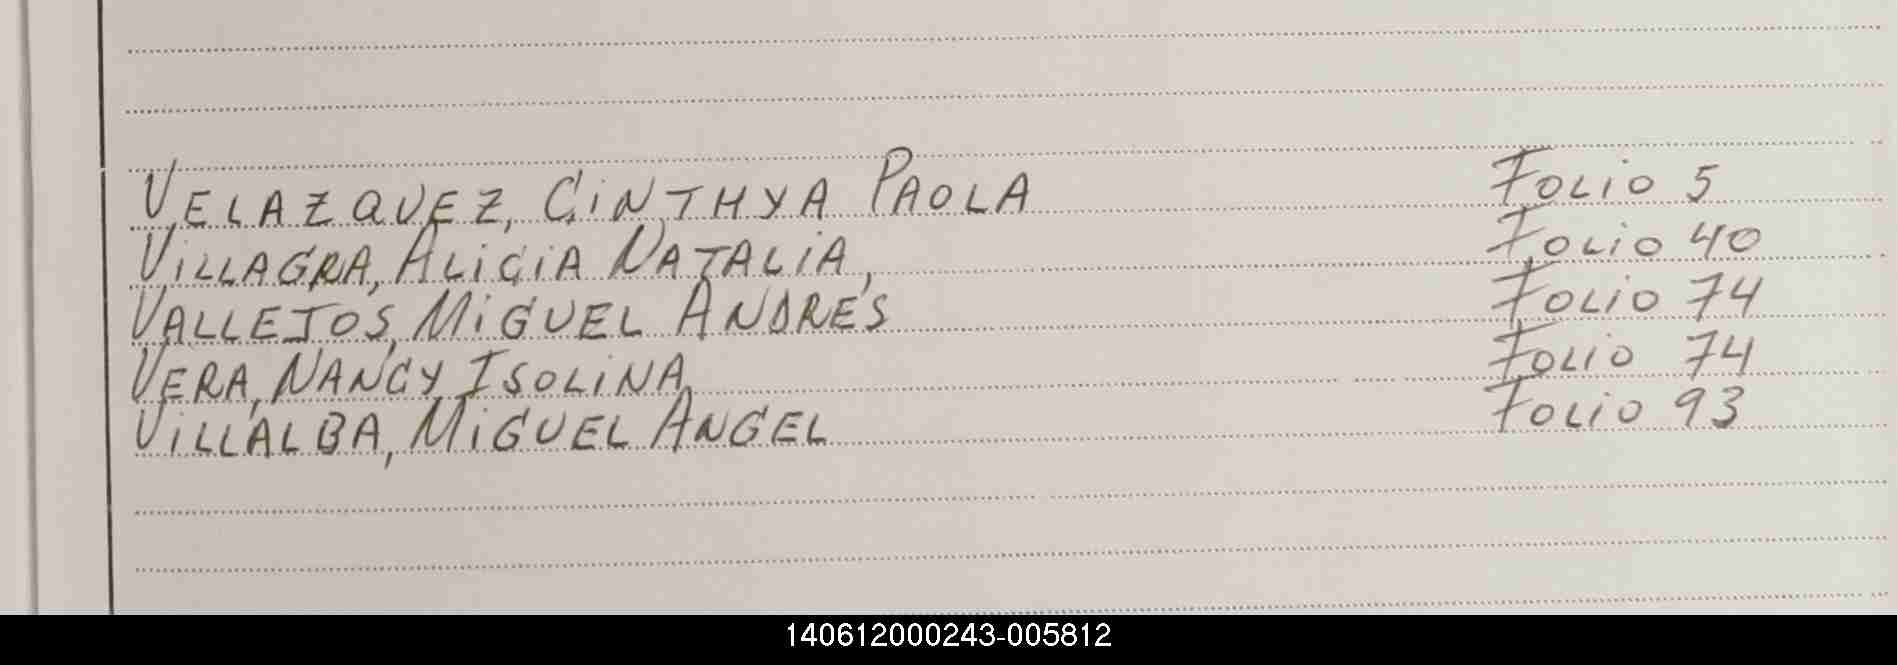 VELAZQUEZ, CiNTHYA PAOLA Folio 5
ViLLAGRA, ALiCiA NATALiA, Folio 40
VALLEJOS, MiGUEL ANDRÉS Folio 74
VERA, NANCY ISOLiNA Folio 74
ViLLALBA, MiGUEL ANGEL Folio 93
140612000243-005812